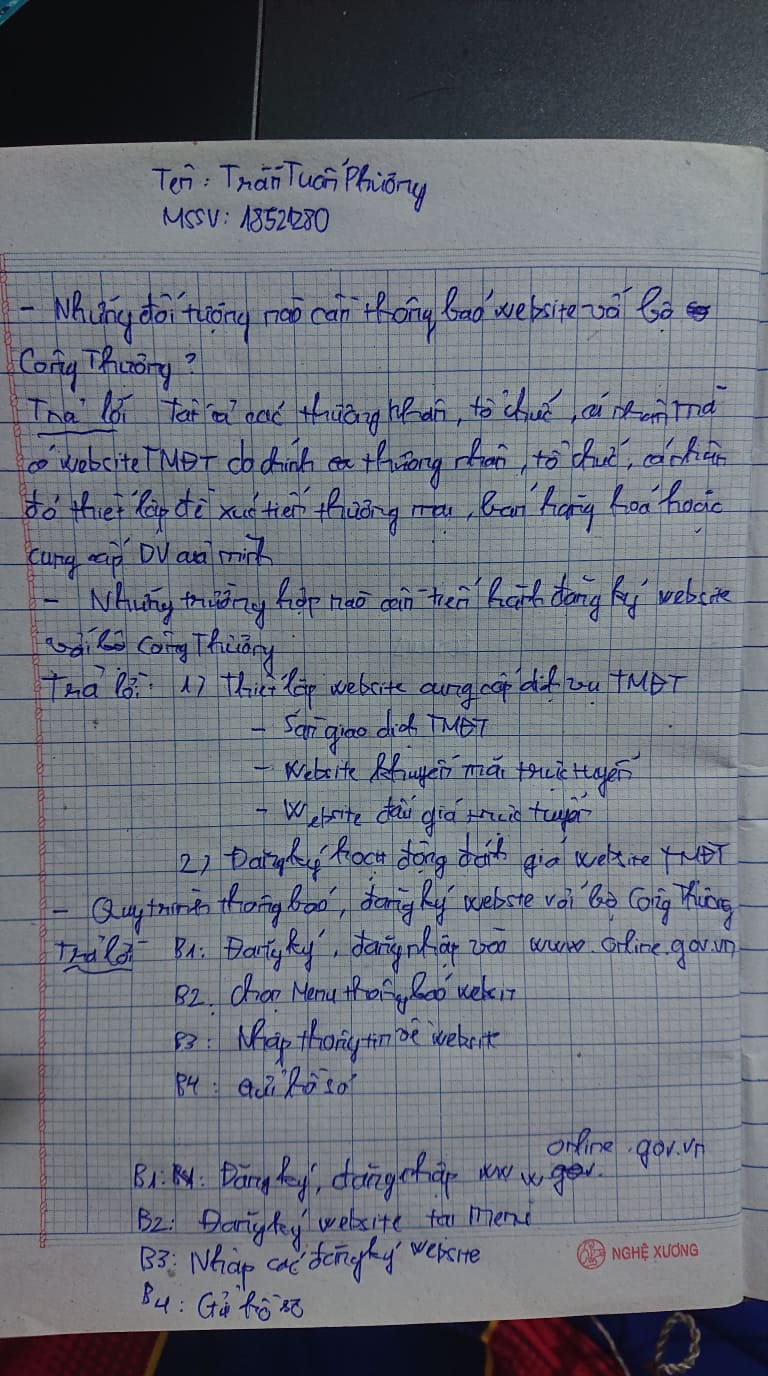 Tên: Trần Tuấn Phương
MSSV: 18521280
- Những đối tượng nào cần thông báo website với bộ
Công Thương?
Trả lời Tất cả các thương nhân, tổ chức, cá nhân mà
có website TMĐT do chính thương nhân, tổ chức, cá nhân
đó thiết lập để xúc tiến thương mại, bán hàng hoá hoặc
cung cấp DV của mình
- Những trường hợp nào cần tiến hành đăng ký website
với bộ Công Thương
Trả lời: 1) Thiết lập website cung cấp dịch vụ TMĐT
- Sàn giao dịch TMĐT
- Website khuyến mãi trực tuyến
- Website đấu giá trực tuyến
2) Đăng ký hoạt động đánh giá website TMĐT
- Quy trình thông báo, đăng ký webste với bộ Công Thương
Trả lời B1: Đăng ký, đăng nhập vào www.online.gov.vn
B2. chọn Menu thông báo
B3: Nhập thông tin về website
B4: Gửi hồ sơ
online.gov.vn
B1: Đăng ký, đăng nhập www.
B2: Đăng ký website tại menu
B3: Nhập các đăng ký website
B4: Gửi hồ sơ
NGHỆ XƯƠNG